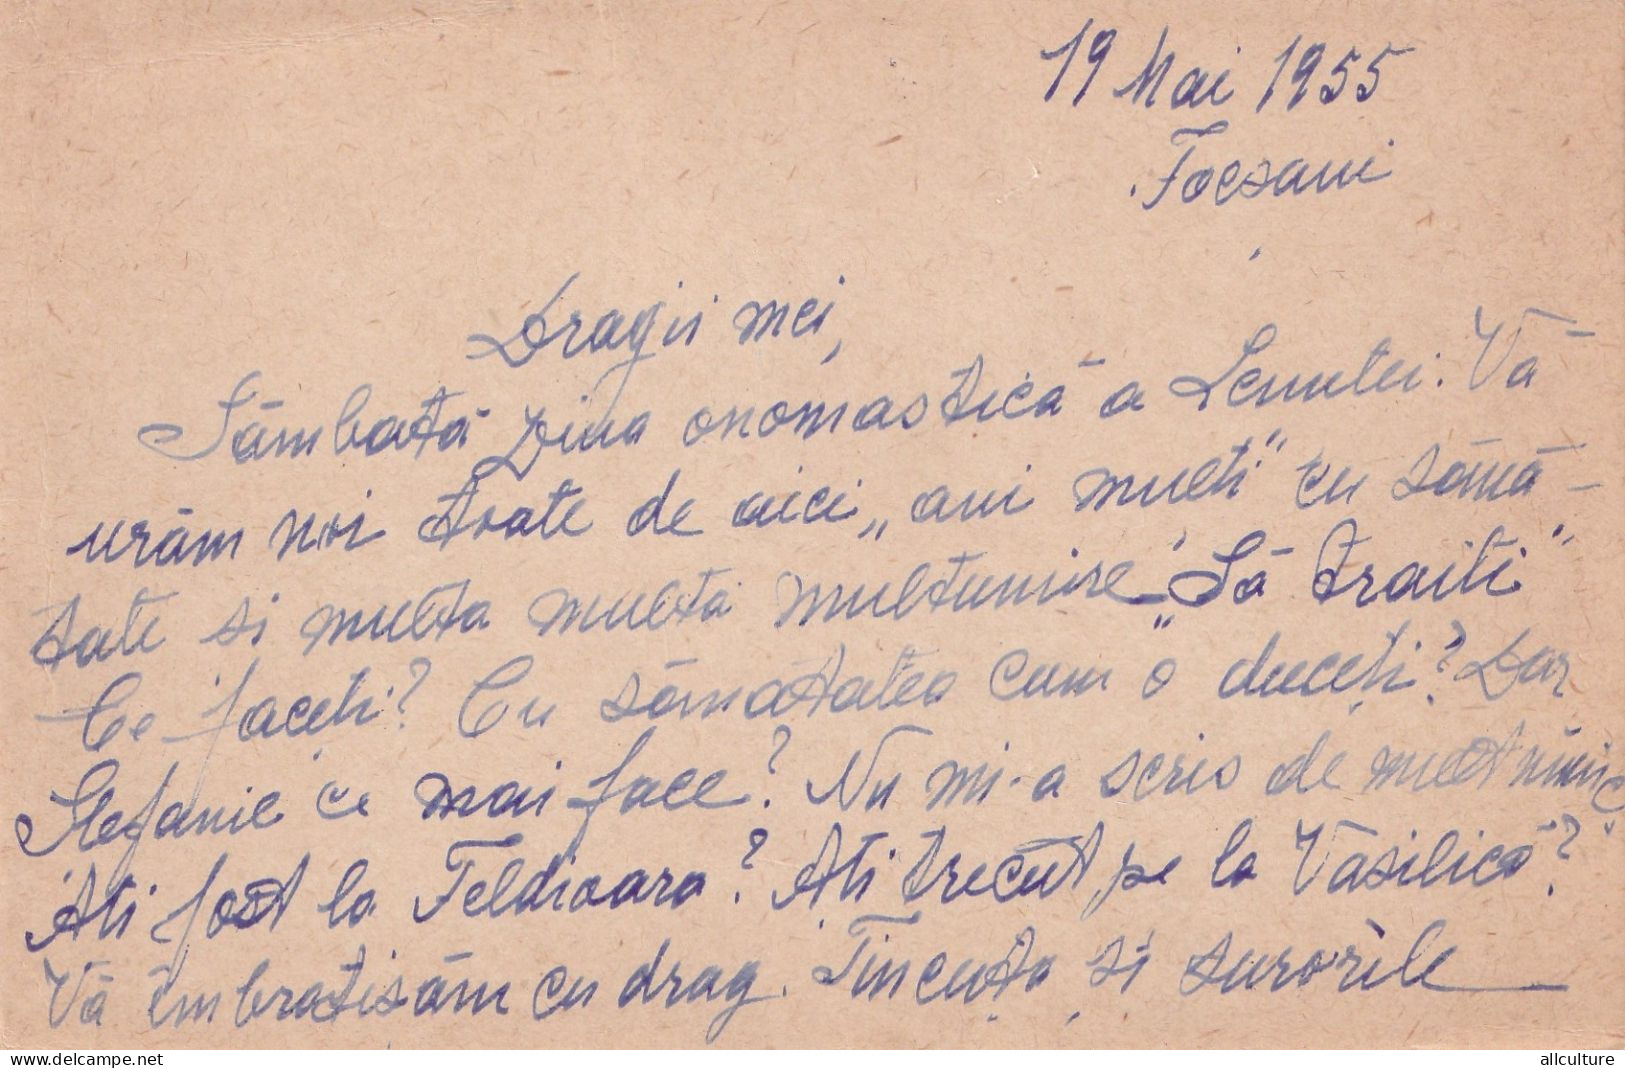 19 Mai 1955
Focsani
Dragii mei,
Sâmbată ziua onomastică a Lenutei. Vă
urăm noi toate de aici „ani mulți" cu sănă-
tate si multa multă multumire „Să traiti"
Ce faceți? Cu sănătatea cum o duceți? Dar
Stefanie ce mai face? Nu mi-a scris de mult nimic.
Ati fost la Feldioara? Ati trecut pe la Vasilică?
Vă îmbratisăm cu drag. Tincuța și surorile
www.delcampe.net
allculture